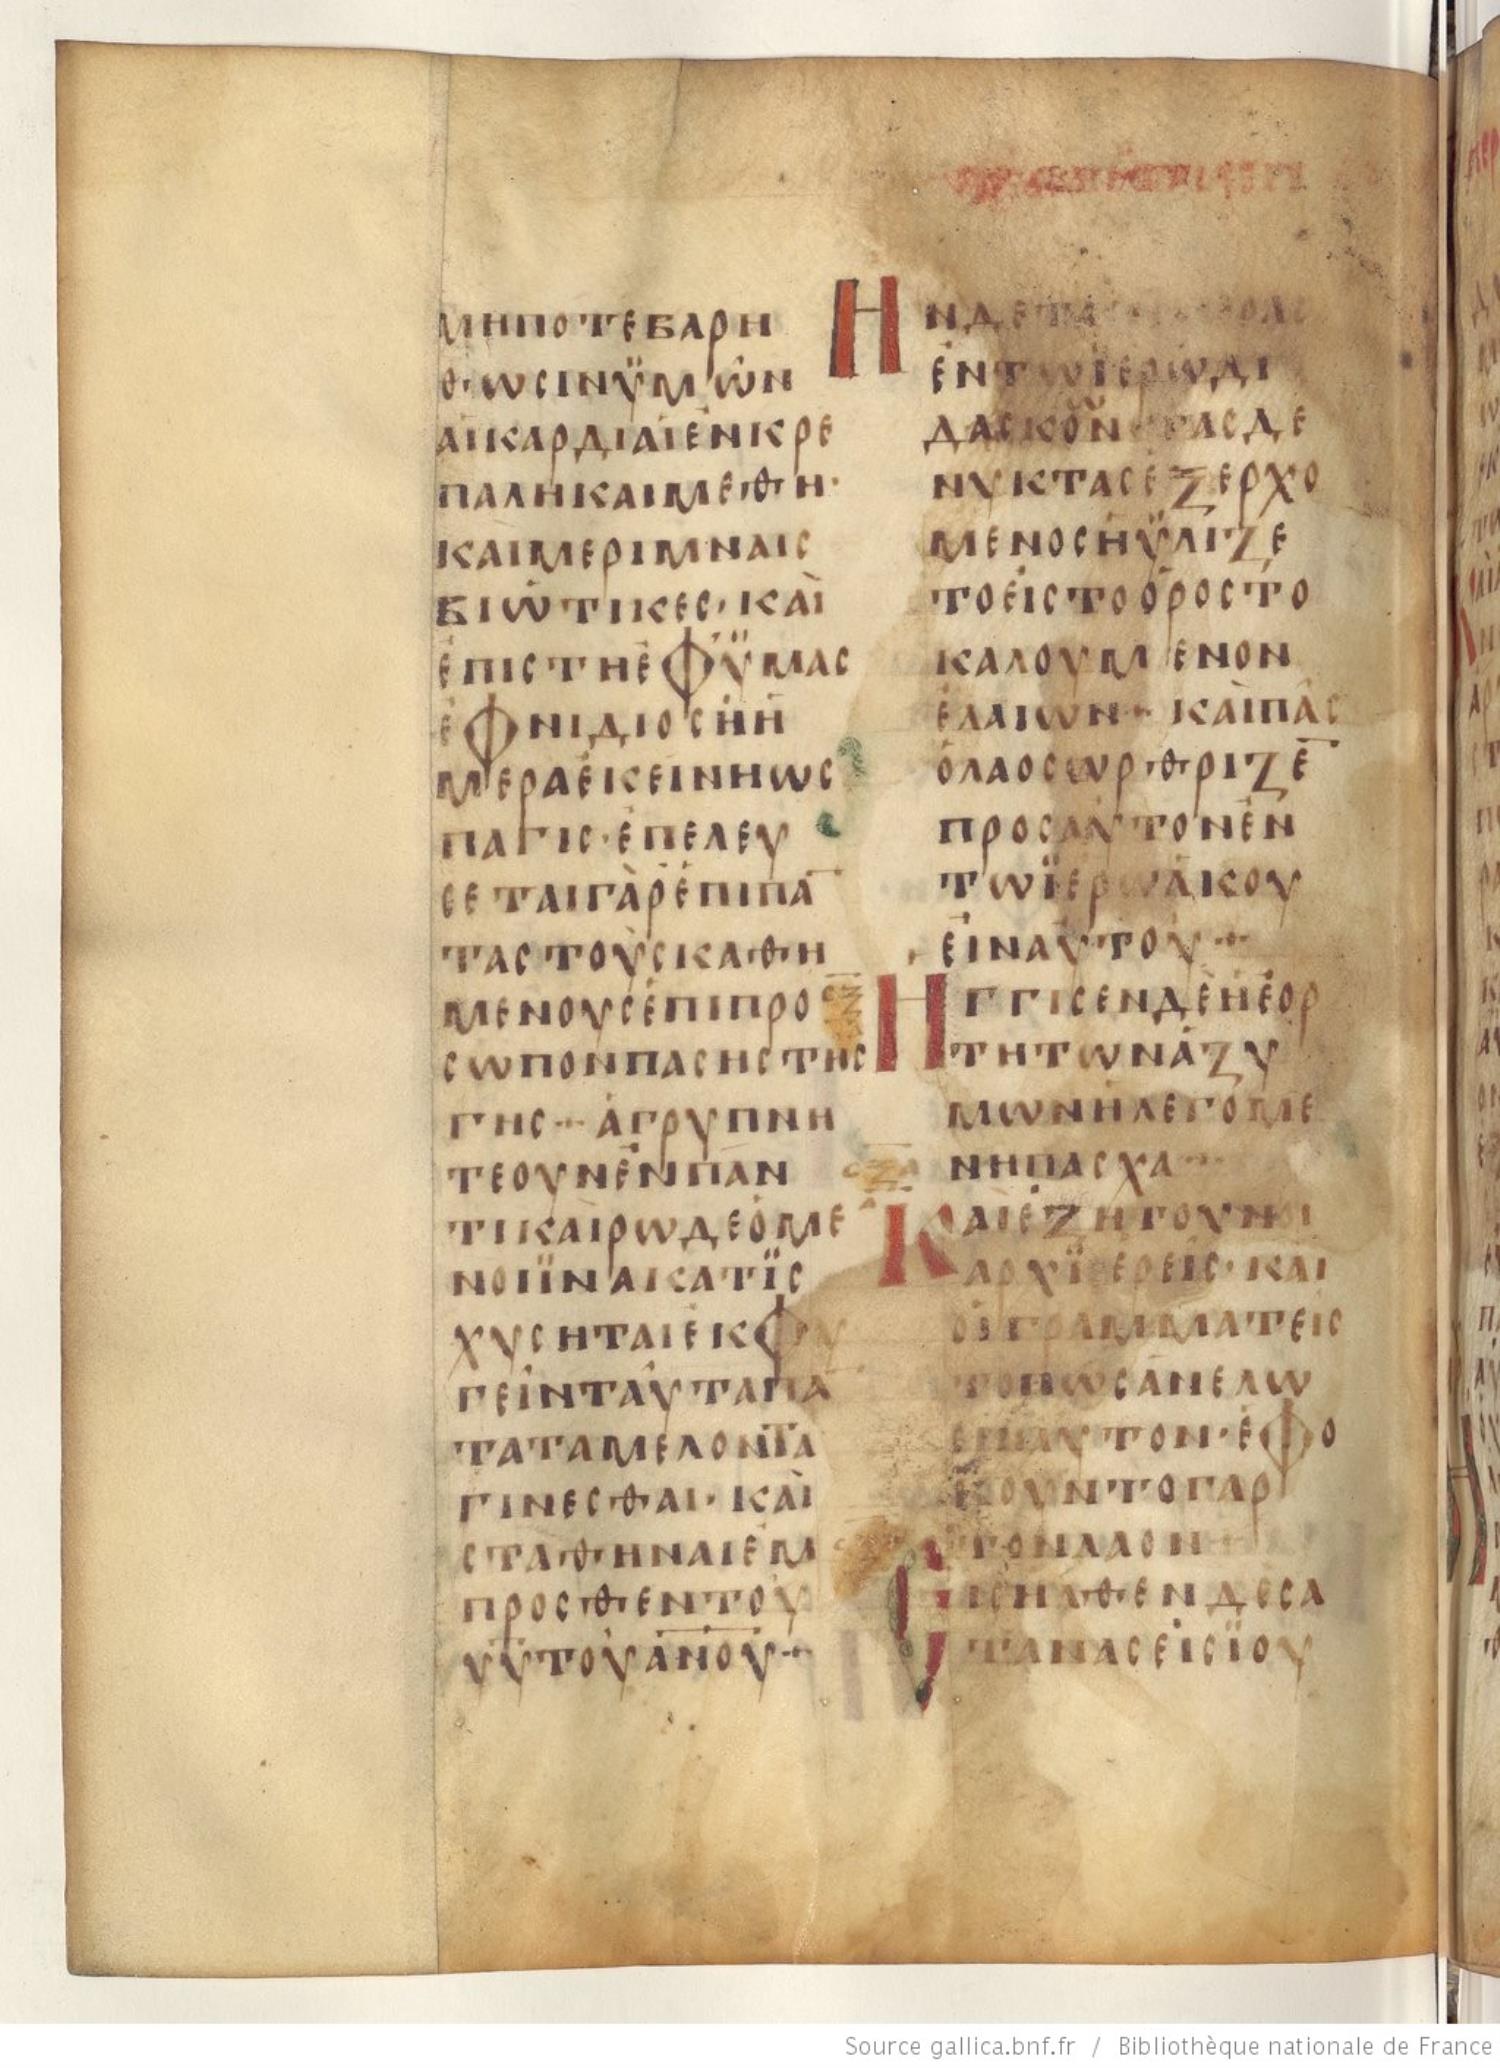 ΜΗΠΟΤΕΒΑΡΗ
ΘΩСΙΝΫΜΩΝ
ΑΙΚΑΡΔΙΑΙΕΝΚΡΕ
ΠΑΛΗΚΑΙΜΕΘΗ·
ΚΑΙΜΕΡΙΜΝΑΙС
ΒΙΩΤΙΚΕС·ΚΑΙ
ΕΠΙСΤΗΕΦΫΜΑС
ΕΦΝΙΔΙΟСΗΗ
ΜΕΡΑΕΚΕΙΝΗΩС
ΠΑΓΙС·ΕΠΕΛΕΥ
СΕΤΑΙΓΑΡΕΠΙΠΑ̅
ΤΑСΤΟΥСΚΑΘΗ
ΜΕΝΟΥСΕΠΙΠΡΟ
СΩΠΟΝΠΑСΗСΤΗС
ΓΗС·ΑΓΡΥΠΝΗ
ΤΕΟΥΝΕΝΠΑΝ
ΤΙΚΑΙΡΩΔΕΟΜΕ
ΝΟΙΪΝΑΚΑΤΪС
ΧΥСΗΤΑΙΕΚΦΥ
ΓΕΙΝΤΑΥΤΑΠΑ̅
ΤΑΤΑΜΕΛΟΝΤΑ
ΓΙΝΕСΘΑΙ·ΚΑΙ
СΤΑΘΗΝΑΙΕΜ
ΠΡΟСΘΕΝΤΟΥ
Υ̅Υ̅ΤΟΥΑ̅Ν̅Ο̅Υ̅·
ΗΝΔΕΤΑ
ΕΝΤΩΪΕΡΩΔΙ
ΔΑСΚΟΝ ΤΑСΔΕ
ΝΥΚΤΑСΕΞΕΡΧΟ
ΜΕΝΟСΗΫΛΙΖΕ
ΤΟΕΙСΤΟΟΡΟСΤΟ
ΚΑΛΟΥΜΕΝΟΝ
ΕΛΑΙΩΝ·ΚΑΙΠΑС
ΟΛΑΟСΩΡΘΡΙΖΕ̅
ΠΡΟСΑΥΤΟΝΕΝ
ΤΩΪΕΡΩΑΚΟΥ
ΕΙΝΑΥΤΟΥ·
ΗΓΓΙСΕΝΔΕΗΕΟΡ
ΤΗΤΩΝΑΖΥ
ΜΩΝΗΛΕΓΟΜΕ
ΝΗΠΑСΧΑ·
ΚΑΙΕΖΗΤΟΥΝΟΙ
ΑΡΧΪΕΡΕΙС·ΚΑΙ
ΟΙΓΡΑΜΜΑΤΕΙС
ΤΟΠΩСΑΝΕΛΩ
СΙΝΑΥΤΟΝ·ΕΦΟ
ΒΟΥΝΤΟΓΑΡ
ΤΟΝΛΑΟΝ
ΕΙСΗΛΘΕΝΔΕСΑ
ΤΑΝΑСΕΙСΪΟΥ
Source gallica.bnf.fr / Bibliothèque nationale de France